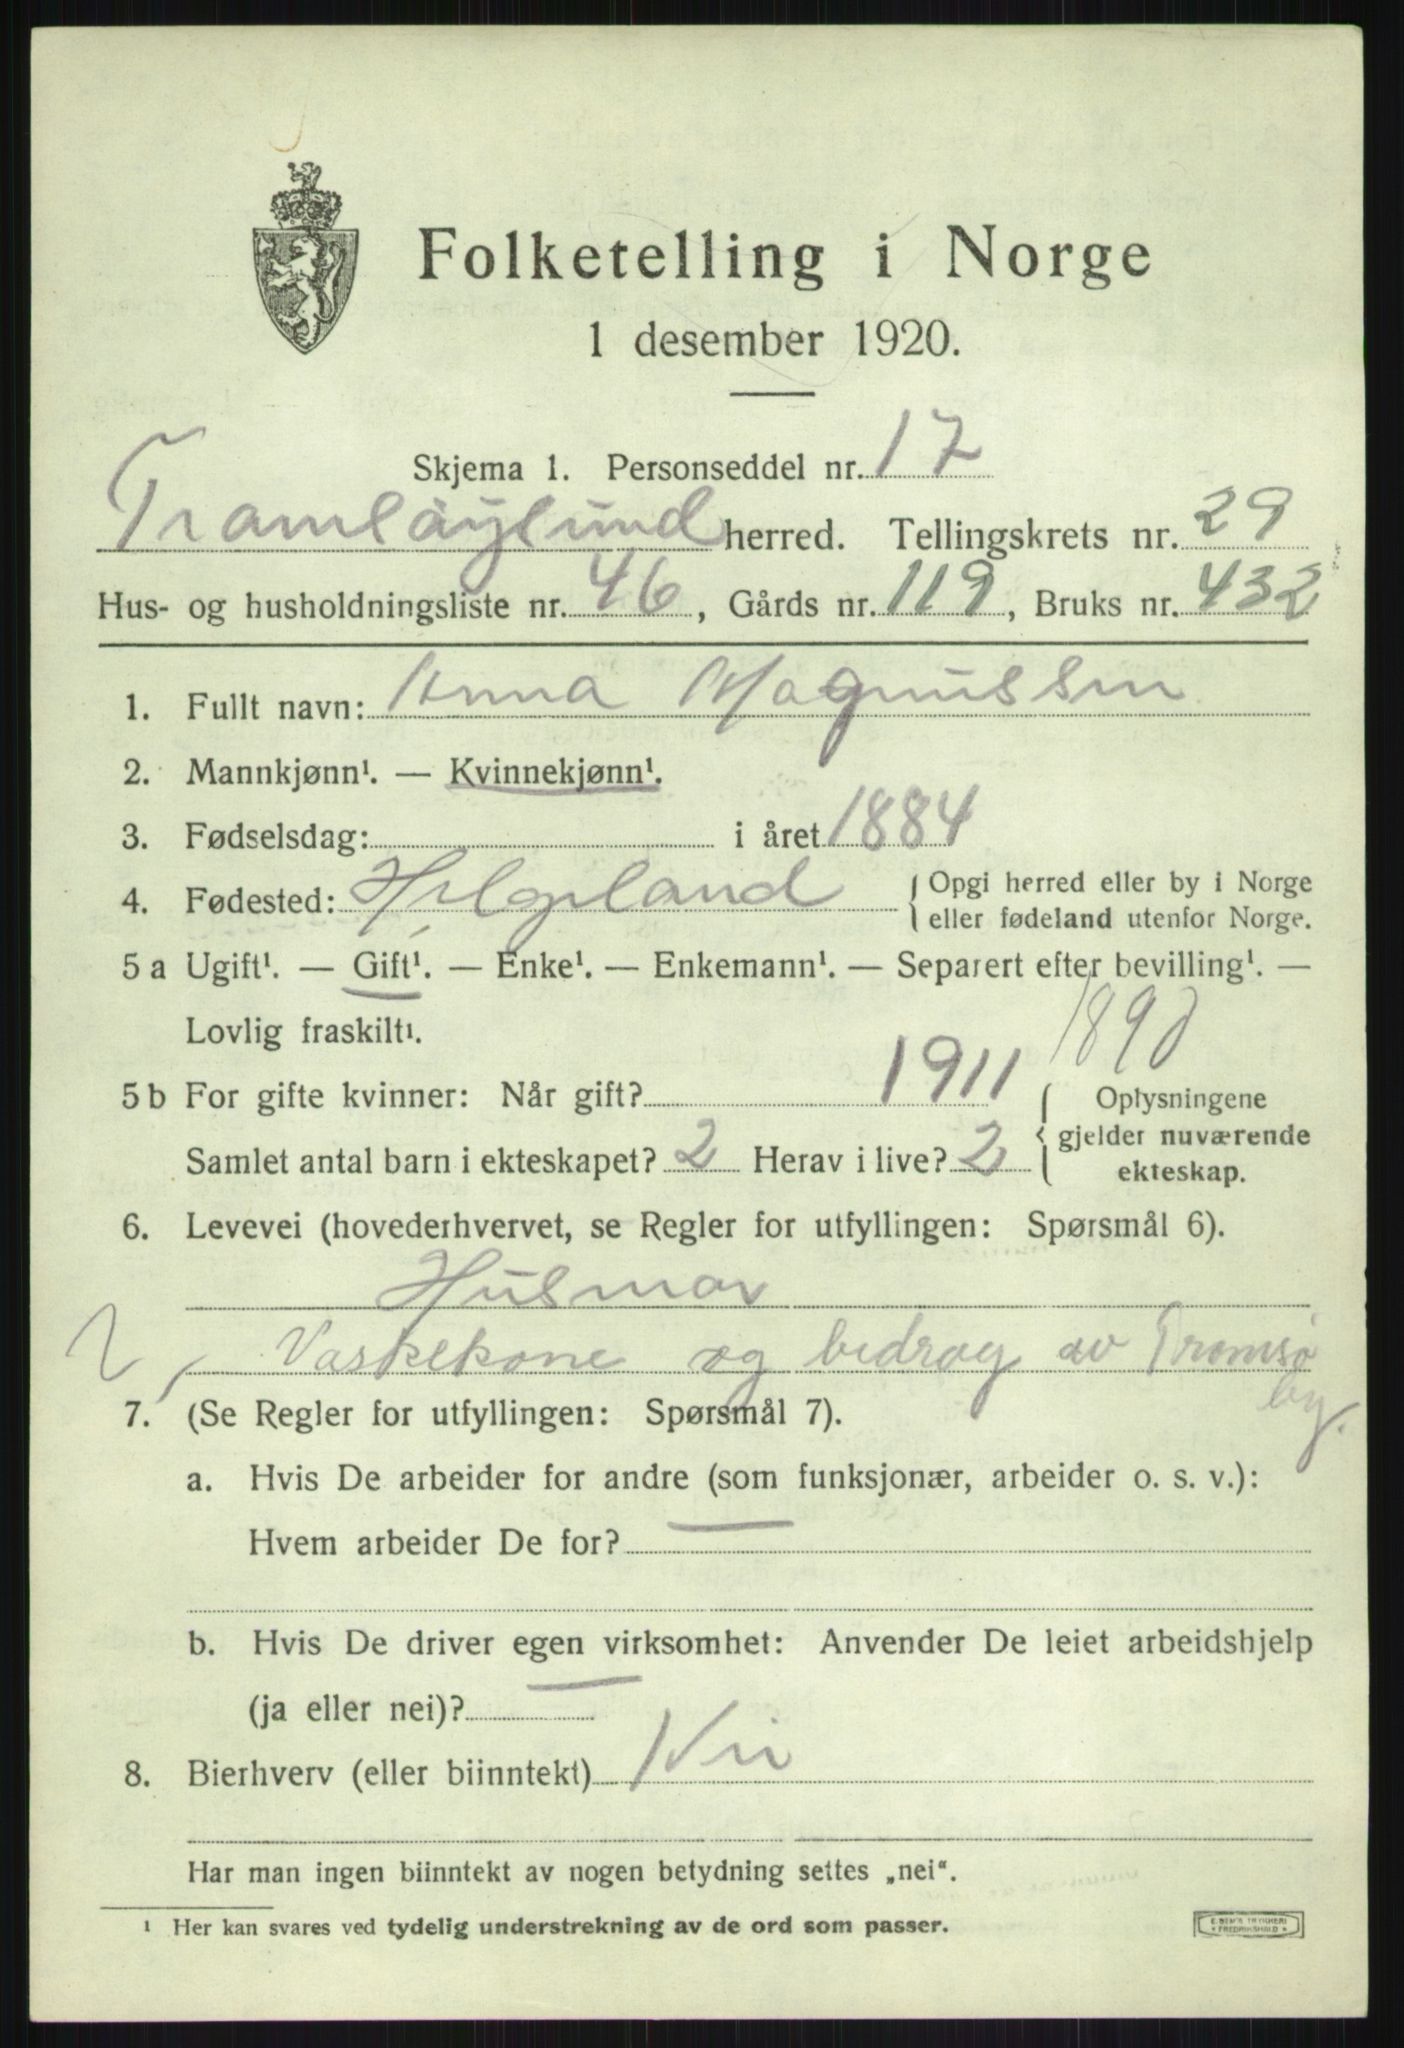 Folketelling i Norge
1 desember 1920.
Skjema 1. Personseddel nr. 17
Tromsøysund herred. Tellingskrets nr. 29
Hus- og husholdningsliste nr. 46, Gårds nr. 119, Bruks nr. 432
1. Fullt navn: Anna Magnussen
2. Mannkjønn¹. — Kvinnekjønn¹.
3. Fødselsdag: i året 1884
4. Fødested: Helgeland { Opgi herred eller by i Norge
eller fødeland utenfor Norge.
5 a Ugift¹. — Gift¹. — Enke¹. — Enkemann¹. — Separert efter bevilling¹. —
Lovlig fraskilt¹.
5 b For gifte kvinner: Når gift? 1911 { Oplysningene
gjelder nuværende
Samlet antal barn i ekteskapet? 2 Herav i live? 2 ekteskap.
6. Levevei (hovederhvervet, se Regler for utfyllingen: Spørsmål 6).
Husmor
Vaskekone og bidrag av Tromsø
by.
7. (Se Regler for utfyllingen: Spørsmål 7).
a. Hvis De arbeider for andre (som funksjonær, arbeider o. s. v.):
Hvem arbeider De for?
b. Hvis De driver egen virksomhet: Anvender De leiet arbeidshjelp
(ja eller nei)?
8. Bierhverv (eller biinntekt) Nei
Har man ingen biinntekt av nogen betydning settes „nei“.
¹ Her kan svares ved tydelig understrekning av de ord som passer.
E. SEM'S TRYKKERI
FREDRIKSHALD